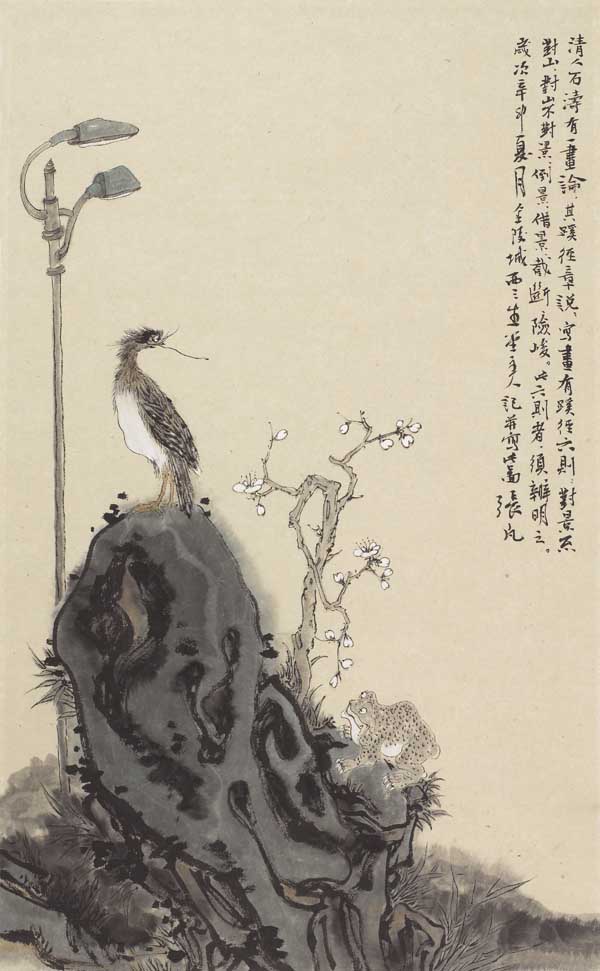 清人石濤有一畫論，其蹊徑章說，寫畫有蹊徑六則：對景不
對山、對山不對景、倒景、借景、截斷、險峻。此六則者，須辨明之。
歲次辛卯夏月金陵城西三堂主人記并寫此圖張凡